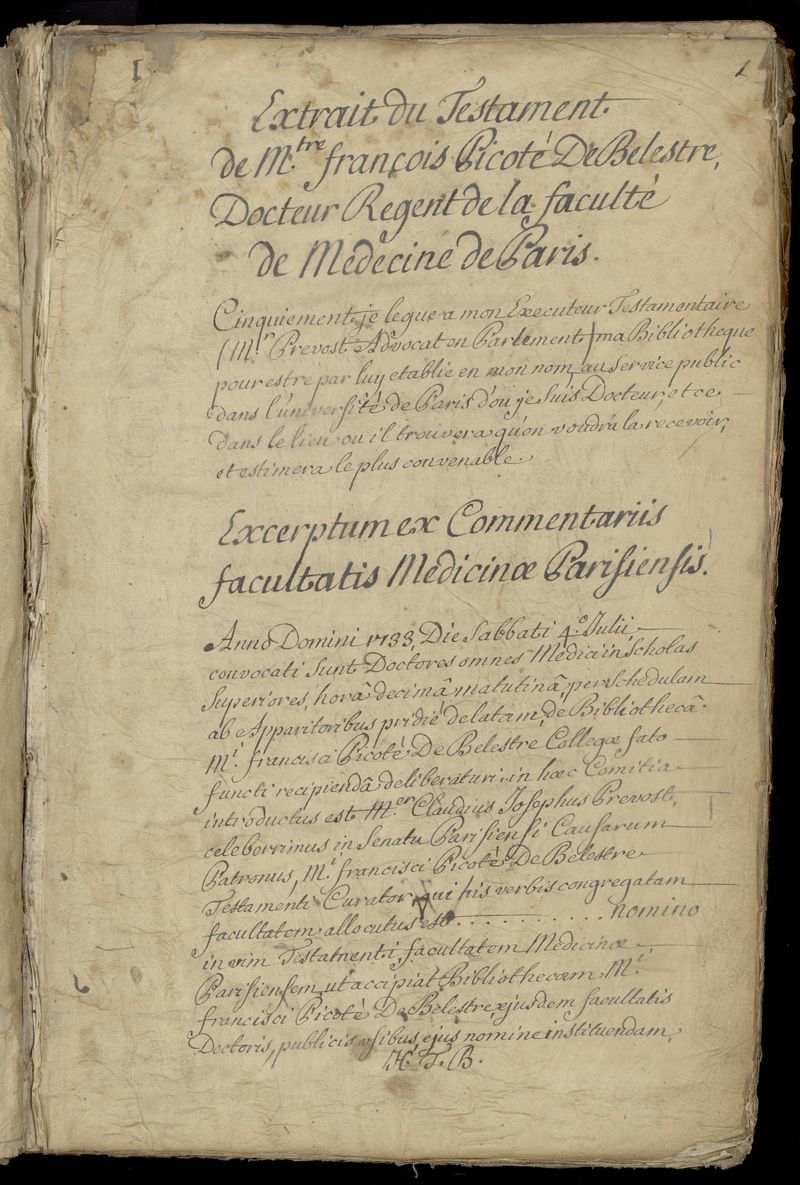 I
1
Extrait du Testament
de M.tre françois Picoté De Belestre,
Docteur Regent de la faculté
de Medecine de Paris.
Cinquiement je legue a mon Executeur Testamentaire
(Mr. Prevost Advocat en Parlement) ma Bibliotheque
pour estre par luy etablie en mon nom au service public
dans l'université de Paris d'ou je suis Docteur, et ce
dans le lieu ou il trouvera qu'on voudra la recevoir,
et estimera le plus convenable.
Excerptum ex Commentariis
facultatis Medicinæ Parisiensis.
Anno Domini 1733, Die Sabbati 4.o Julii
convocati sunt Doctores omnes Medici in Scholas
Superiores, horâ decimâ matutinâ, per Schedulam
ab e Apparitoribus pridiè delatam, de Bibliothecâ
M.i francisci Picoté De Belestre Collegæ fato
functi recipiendâ deliberaturi, in hæc Comitia
introductus est M.er Claudius Josephus Prevost,
celeberrimus in Senatu Parisiensi Causarum
Patronus, M.i francisci Picoté De Belestre
Testamenti Curator, qui his verbis congregatam
facultatem allocutus est . . . . . . . . . . . nomino
in vim Testamenti, facultatem Medicinæ
Parisiensem, ut accipiat Bibliothecam M.i
francisci Picoté De Belestre ejusdem facultatis
Doctoris, publicis usibus, ejus nomine instituendam.
H. T. B.